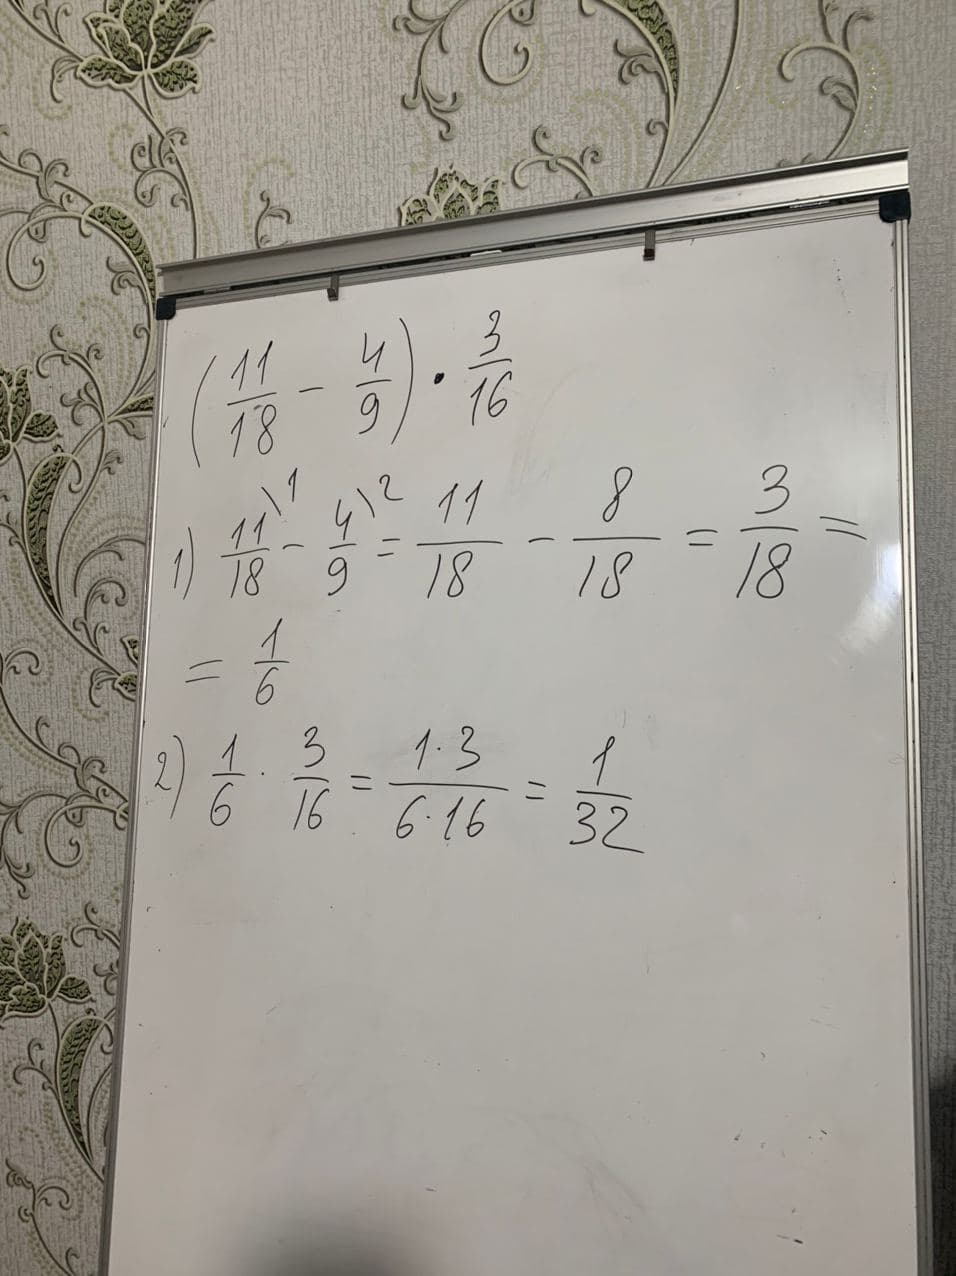 (11/18 - 4/9) · 3/16
1) 11/18\1 - 4/9\2 = 11/18 - 8/18 = 3/18 =
= 1/6
2) 1/6 · 3/16 = 1·3/6·16 = 1/32